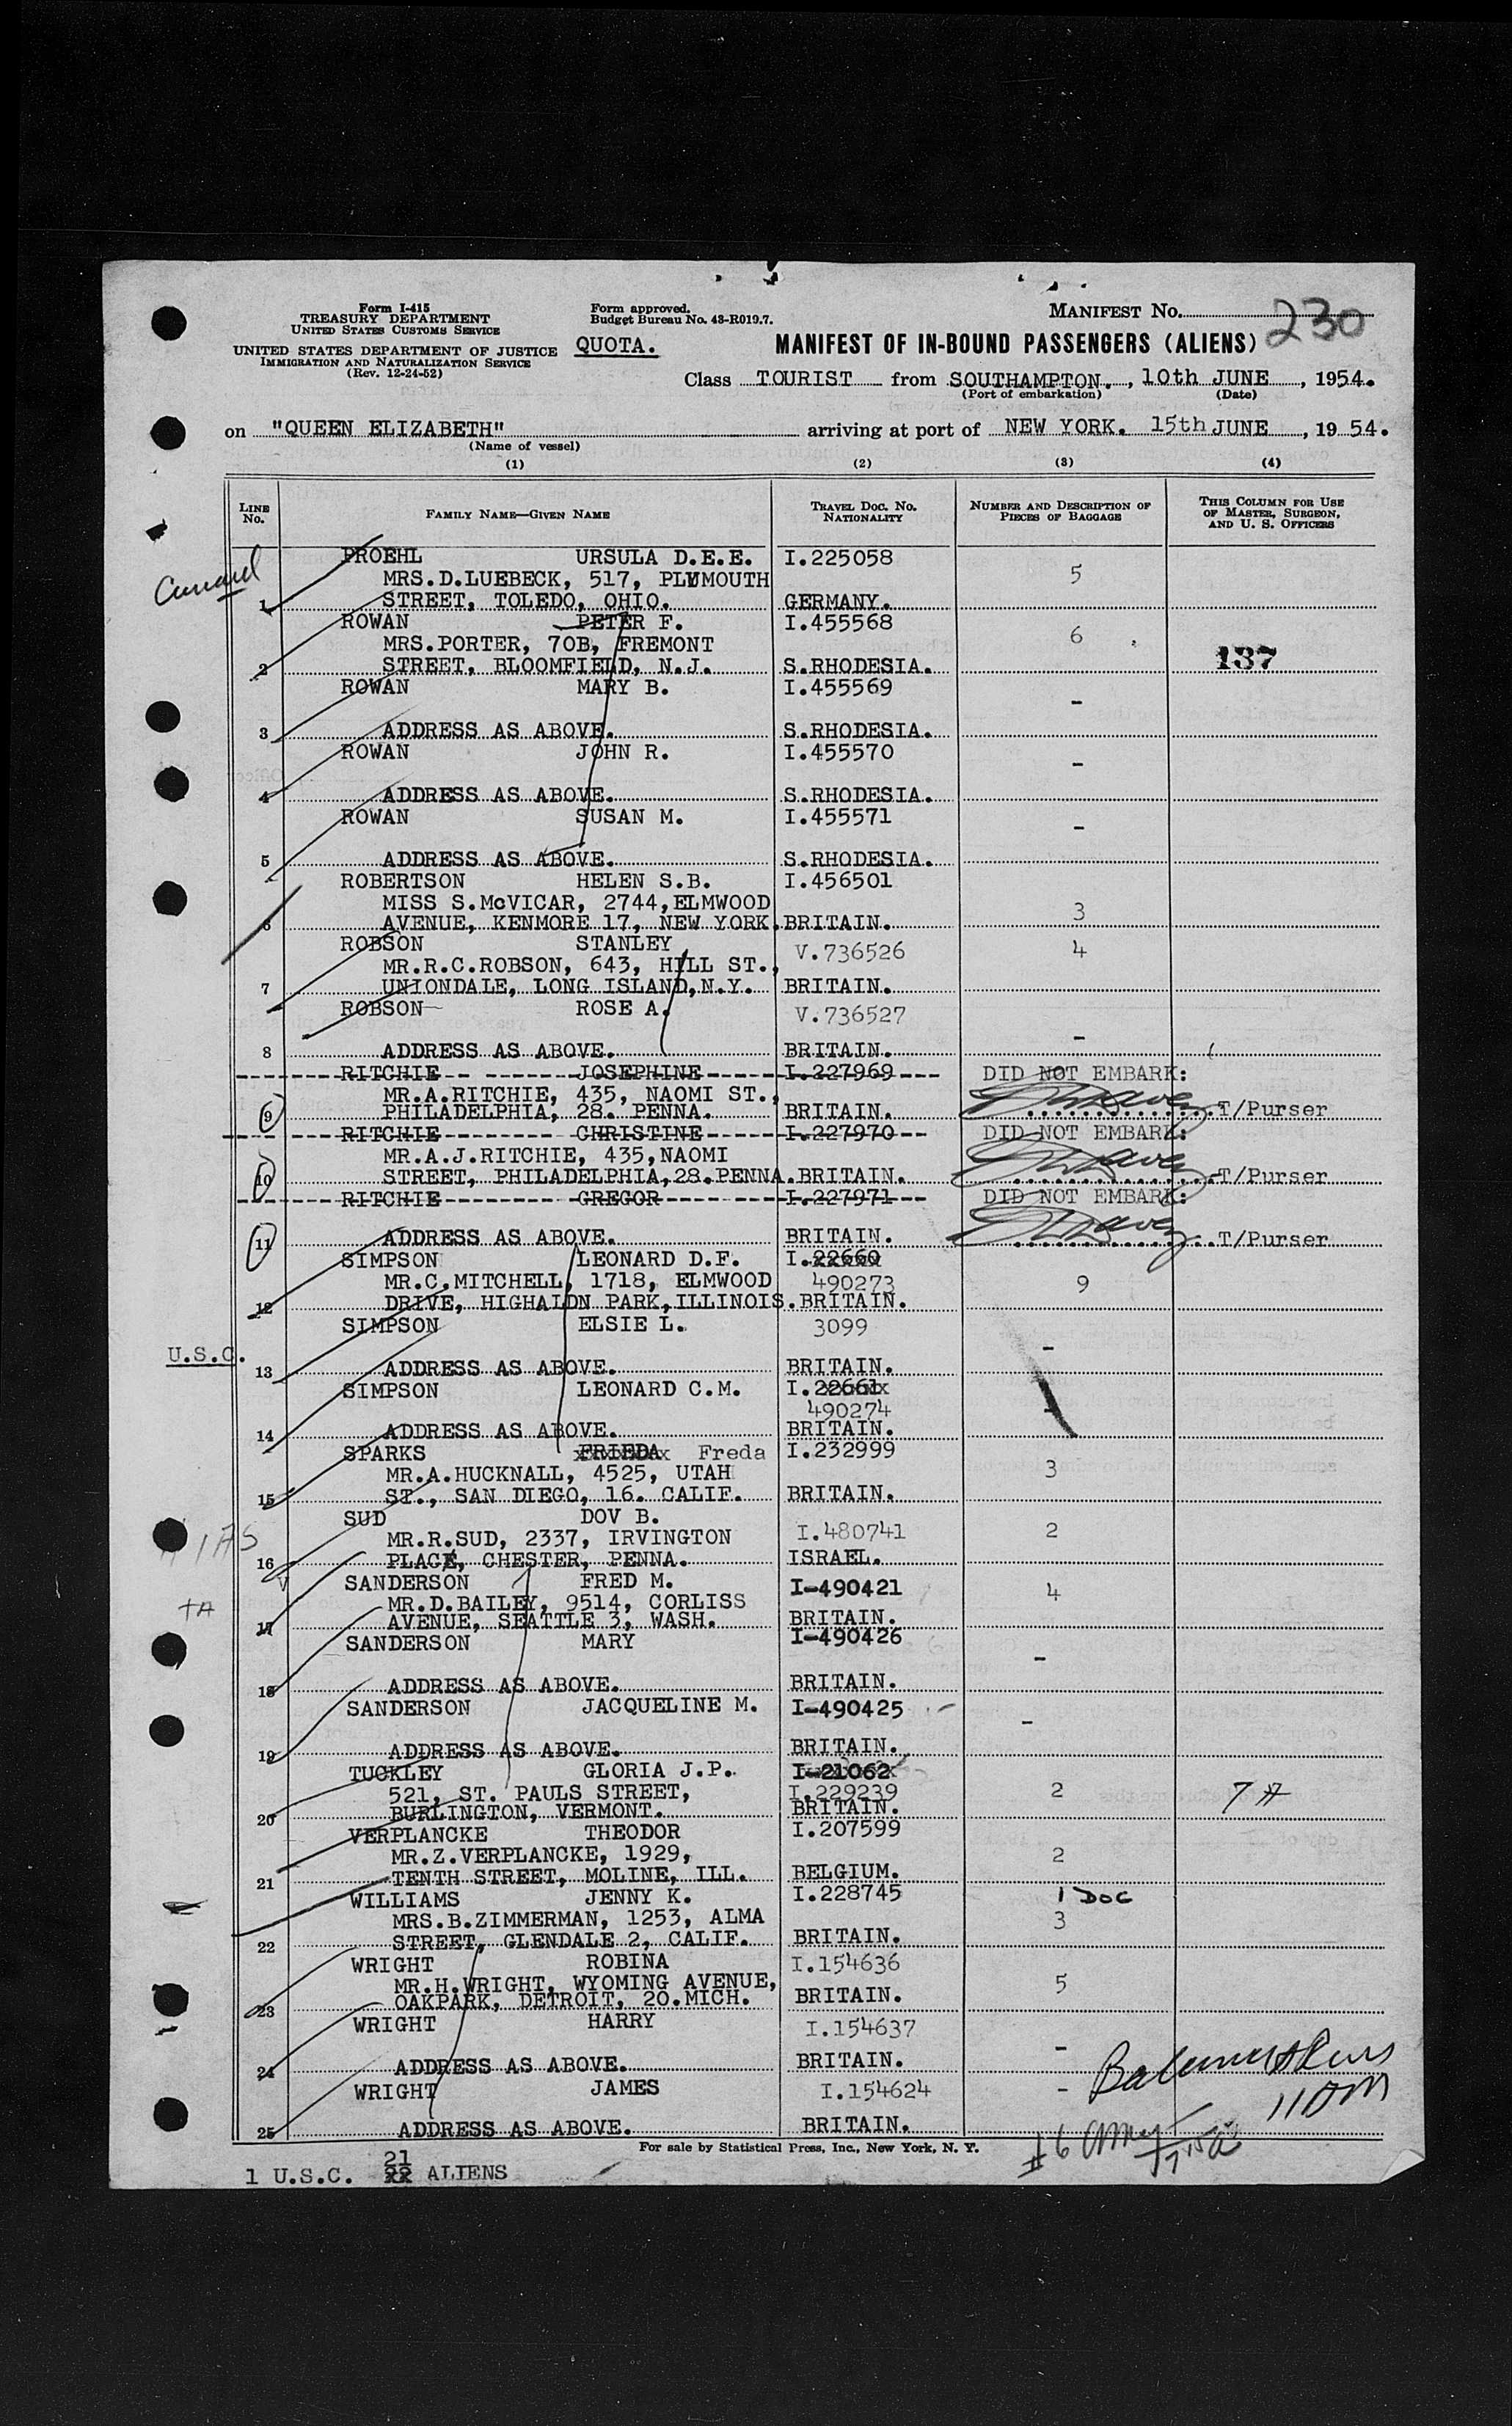 Form I-415
TREASURY DEPARTMENT
UNITED STATES CUSTOMS SERVICE
UNITED STATES DEPARTMENT OF JUSTICE
IMMIGRATION AND NATURALIZATION SERVICE
(Rev. 12-24-52)
Form approved.
Budget Bureau No. 43-R019.7.
QUOTA.
MANIFEST No. 230
MANIFEST OF IN-BOUND PASSENGERS (ALIENS)
Class TOURIST from SOUTHAMPTON., 10th JUNE, 1954.
(Port of embarkation) (Date)
on "QUEEN ELIZABETH" arriving at port of NEW YORK. 15th JUNE, 19 54.
(Name of vessel)
(1) (2) (3) (4)
LINE No. FAMILY NAME—GIVEN NAME TRAVEL DOC. NO. NATIONALITY NUMBER AND DESCRIPTION OF PIECES OF BAGGAGE THIS COLUMN FOR USE OF MASTER, SURGEON, AND U. S. OFFICERS
Cunard
PROEHL URSULA D.E.E. I.225058
MRS.D.LUEBECK, 517, PLYMOUTH 5
1 STREET, TOLEDO, OHIO. GERMANY.
ROWAN PETER F. I.455568
MRS.PORTER, 70B, FREMONT 6
2 STREET, BLOOMFIELD, N.J. S.RHODESIA. 137
ROWAN MARY B. I.455569
-
3 ADDRESS AS ABOVE. S.RHODESIA.
ROWAN JOHN R. I.455570
-
4 ADDRESS AS ABOVE. S.RHODESIA.
ROWAN SUSAN M. I.455571
-
5 ADDRESS AS ABOVE. S.RHODESIA.
ROBERTSON HELEN S.B. I.456501
MISS S.McVICAR, 2744,ELMWOOD 3
6 AVENUE, KENMORE 17, NEW YORK. BRITAIN.
ROBSON STANLEY V.736526 4
MR.R.C.ROBSON, 643, HILL ST.,
7 UNIONDALE, LONG ISLAND,N.Y. BRITAIN.
ROBSON ROSE A. V.736527
-
8 ADDRESS AS ABOVE. BRITAIN.
RITCHIE JOSEPHINE I.227969 DID NOT EMBARK:
MR.A.RITCHIE, 435, NAOMI ST.,
9 PHILADELPHIA, 28. PENNA. BRITAIN. T/Purser
RITCHIE CHRISTINE I.227970 DID NOT EMBARK:
MR.A.J.RITCHIE, 435,NAOMI
10 STREET, PHILADELPHIA,28.PENNA. BRITAIN. T/Purser
RITCHIE GREGOR I.227971 DID NOT EMBARK:
11 ADDRESS AS ABOVE. BRITAIN. T/Purser
SIMPSON LEONARD D.F. I.22660
MR.C.MITCHELL, 1718, ELMWOOD 490273 9
12 DRIVE, HIGHALDN PARK,ILLINOIS. BRITAIN.
SIMPSON ELSIE L. 3099
U.S.C. -
13 ADDRESS AS ABOVE. BRITAIN.
SIMPSON LEONARD C.M. I.22661
490274 -
14 ADDRESS AS ABOVE. BRITAIN.
SPARKS FRIEDA Freda I.232999
MR.A.HUCKNALL, 4525, UTAH 3
15 ST., SAN DIEGO, 16. CALIF. BRITAIN.
SUD DOV B. I.480741 2
HIAS MR.R.SUD, 2337, IRVINGTON
16 PLACE, CHESTER, PENNA. ISRAEL.
SANDERSON FRED M. I-490421 4
MR.D.BAILEY, 9514, CORLISS
17 AVENUE, SEATTLE 3, WASH. BRITAIN.
SANDERSON MARY I-490426
-
18 ADDRESS AS ABOVE. BRITAIN.
SANDERSON JACQUELINE M. I-490425
-
19 ADDRESS AS ABOVE. BRITAIN.
TUCKLEY GLORIA J.P. I-21062
521, ST. PAULS STREET, I.229239 2
20 BURLINGTON, VERMONT. BRITAIN.
VERPLANCKE THEODOR I.207599
MR.Z.VERPLANCKE, 1929, 2
21 TENTH STREET, MOLINE, ILL. BELGIUM.
WILLIAMS JENNY K. I.228745 1 DOC
MRS.B.ZIMMERMAN, 1253, ALMA 3
22 STREET, GLENDALE 2, CALIF. BRITAIN.
WRIGHT ROBINA I.154636
MR.H.WRIGHT, WYOMING AVENUE, 5
23 OAKPARK, DETROIT, 20.MICH. BRITAIN.
WRIGHT HARRY I.154637
-
24 ADDRESS AS ABOVE. BRITAIN.
WRIGHT JAMES I.154624 -
25 ADDRESS AS ABOVE. BRITAIN.
For sale by Statistical Press, Inc., New York, N. Y.
21
1 U.S.C. 22 ALIENS